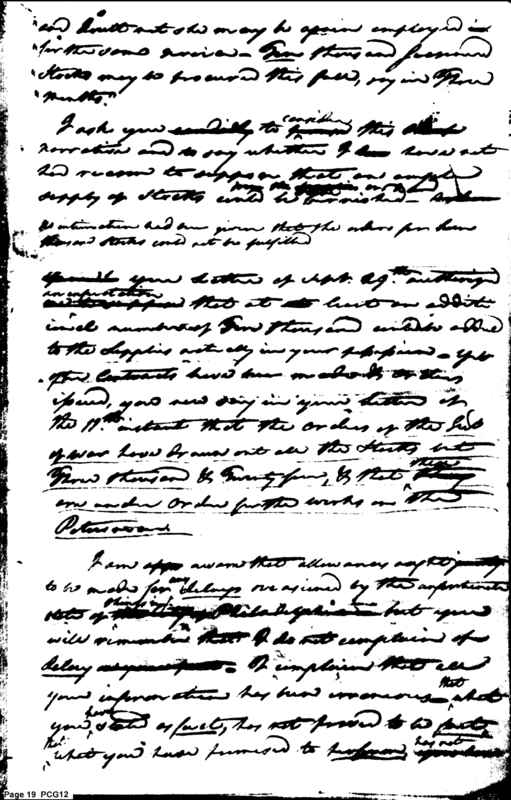 and doubt not she may be again employed in
for the same service – Ten thousand seasoned
Stocks may be procured this fall, say in Three
Months."
I ask you candidly to consider this
narration and to say whether I have not
had reason to suppose that an ample
supply of Stocks could be furnished –
No intimation had been given that the orders for
thousand Stocks could not be fulfilled
your Letter of Sept. 29th authorized
that at least an addit
ional number of Ten thousand could be added
to the Supplies actually in your possession – yet
after Contracts have been made & orders
issued, you now say in your Letter of
the 11th instant that the Orders of the
of war have drawn out all the Stocks but
Three thousand & Twenty four, & that these
are under Order for the works on the
I am aware that allowances ought
to be made for any delays occasioned by the unfortunate
state of things at Philadelphia but you
will remember that I do not complain of
delay – I complain that all
your information has been erroneous – that what
you have stated as facts, has not proved to be facts
what you have promised to perform, has not
Page 19 PCG12